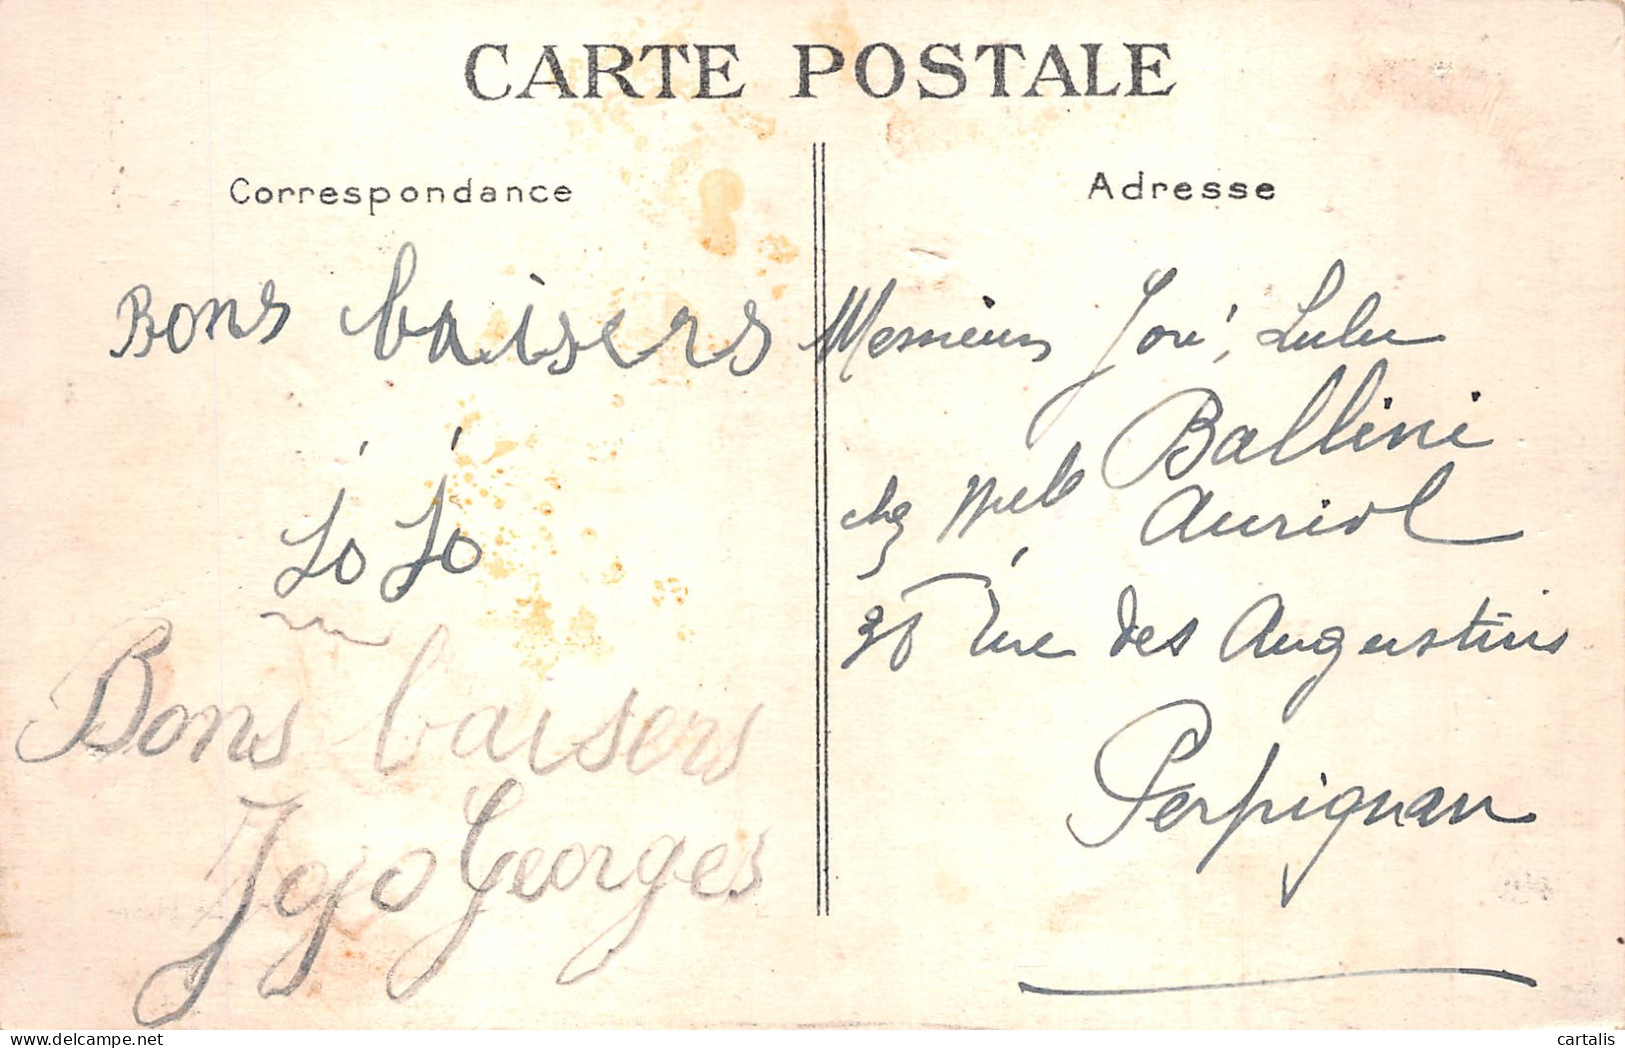 CARTE POSTALE
Correspondance
Bons baisers
Jo Jo
Bons baisers
Jojo Georges
Adresse
Messieurs José, Lulu
Ballini
chez Melle Auriol
rue des Augustins
Perpignan
cartalis